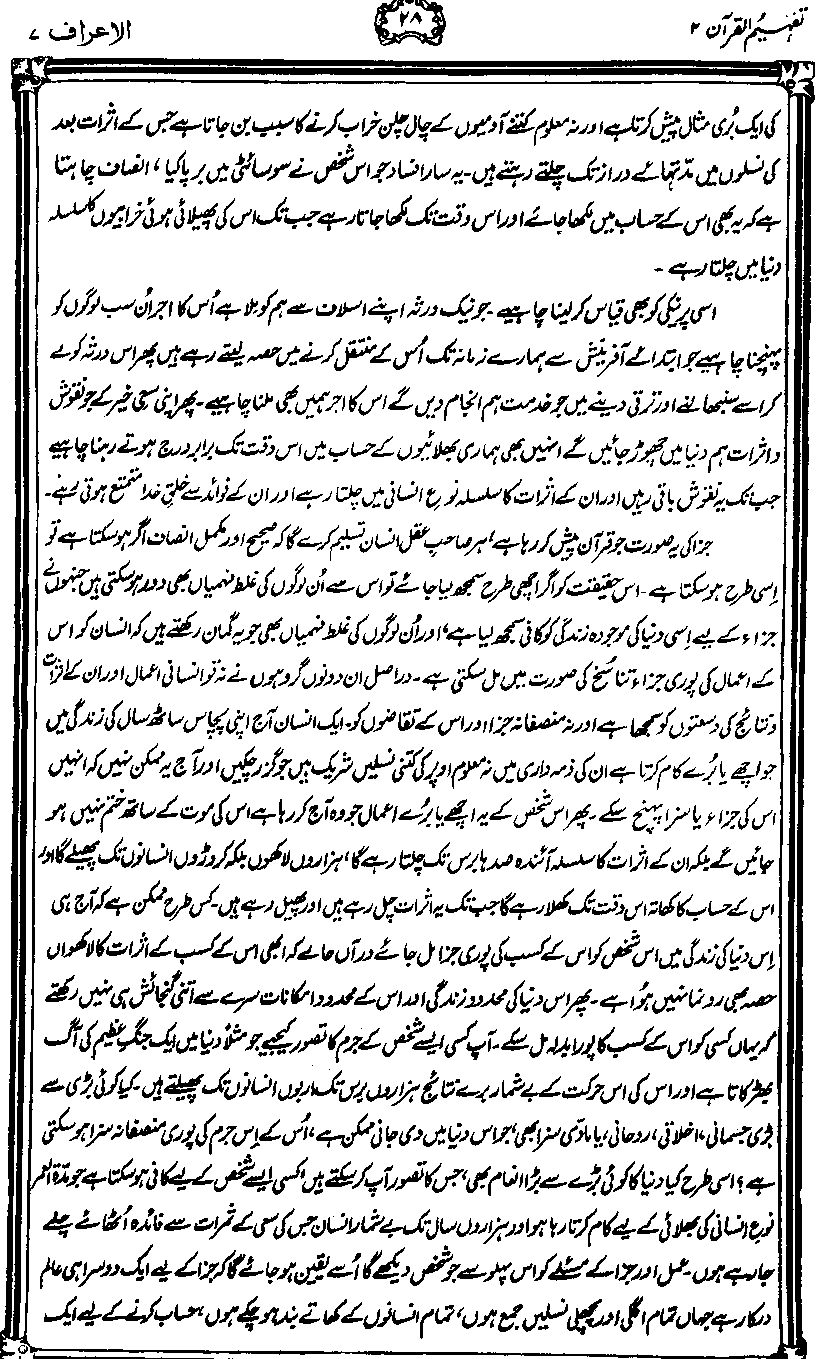 تفہیم القرآن ۲
۲۸
الاعراف ۷
کی ایک بُری مثال پیش کرتا ہے اور نہ معلوم کتنے آدمیوں کے چال چلن خراب کرنے کا سبب بن جاتا ہے جس کے اثرات بعد
کی نسلوں میں مدّتہائے دراز تک چلتے رہتے ہیں۔ یہ سارا فساد جو اس شخص نے سوسائٹی میں برپا کیا، انصاف چاہتا
ہے کہ یہ بھی اس کے حساب میں لکھا جائے اور اس وقت تک لکھا جاتا رہے جب تک اس کی پھیلائی ہوئی خرابیوں کا سلسلہ
دنیا میں چلتا رہے۔
اسی پر نیکی کو بھی قیاس کر لینا چاہیے۔ جو نیک ورثہ اپنے اسلاف سے ہم کو ملا ہے اُس کا اجر اُن سب لوگوں کو
پہنچنا چاہیے جو ابتدائے آفرینش سے ہمارے زمانہ تک اُس کے منتقل کرنے میں حصہ لیتے رہے ہیں پھر اس ورثہ کو لے
کر اسے سنبھالنے اور ترقی دینے میں جو خدمت ہم انجام دیں گے اس کا اجر ہمیں بھی ملنا چاہیے۔ پھر اپنی سعی خیر کے جو نقوش
و اثرات ہم دنیا میں چھوڑ جائیں گے انہیں بھی ہماری بھلائیوں کے حساب میں اس وقت تک برابر درج ہوتے رہنا چاہیے
جب تک یہ نقوش باقی رہیں اور ان کے اثرات کا سلسلہ نوع انسانی میں چلتا رہے اور ان کے فوائد سے خلقِ خدا متمتع ہوتی رہے۔
جزا کی یہ صورت جو قرآن پیش کر رہا ہے، ہر صاحبِ عقل انسان تسلیم کرے گا کہ صحیح اور مکمل انصاف اگر ہو سکتا ہے تو
اِسی طرح ہو سکتا ہے۔ اس حقیقت کو اگر اچھی طرح سمجھ لیا جائے تو اس سے اُن لوگوں کی غلط فہمیاں بھی دور ہو سکتی ہیں جنہوں نے
جزاء کے لیے اِسی دنیا کی موجودہ زندگی کو کافی سمجھ لیا ہے، اور اُن لوگوں کی غلط فہمیاں بھی جو یہ گمان رکھتے ہیں کہ انسان کو اس
کے اعمال کی پوری جزاء تناسخ کی صورت میں مل سکتی ہے۔ دراصل ان دونوں گروہوں نے نہ تو انسانی اعمال اور ان کے اثرات
و نتائج کی وسعتوں کو سمجھا ہے اور نہ منصفانہ جزا اور اس کے تقاضوں کو۔ ایک انسان آج اپنی پچاس ساٹھ سال کی زندگی میں
جو اچھے یا بُرے کام کرتا ہے ان کی ذمہ داری میں نہ معلوم اوپر کی کتنی نسلیں شریک ہیں جو گزر چکیں اور آج یہ ممکن نہیں کہ انہیں
اس کی جزاء یا سزا پہنچ سکے۔ پھر اس شخص کے یہ اچھے یا بُرے اعمال جو وہ آج کر رہا ہے اس کی موت کے ساتھ ختم نہیں ہو
جائیں گے بلکہ ان کے اثرات کا سلسلہ آئندہ صدہا برس تک چلتا رہے گا، ہزاروں لاکھوں بلکہ کروڑوں انسانوں تک پھیلے گا اور
اس کے حساب کا کھاتہ اس وقت تک کھلا رہے گا جب تک یہ اثرات چل رہے ہیں اور پھیل رہے ہیں۔ کس طرح ممکن ہے کہ آج ہی
اِس دنیا کی زندگی میں اس شخص کو اس کے کسب کی پوری جزا مل جائے درآں حالے کہ ابھی اس کے کسب کے اثرات کا لاکھواں
حصہ بھی رونما نہیں ہُوا ہے۔ پھر اس دنیا کی محدود زندگی اور اس کے محدود امکانات سرے سے اتنی گنجائش ہی نہیں رکھتے
کہ یہاں کسی کو اس کے کسب کا پورا بدلہ مل سکے۔ آپ کسی ایسے شخص کے جرم کا تصور کیجیے جو مثلاً دنیا میں ایک جنگِ عظیم کی آگ
بھڑکاتا ہے اور اس کی اس حرکت کے بے شمار برے نتائج ہزاروں برس تک اربوں انسانوں تک پھیلتے ہیں۔ کیا کوئی بڑی سے
بڑی جسمانی، اخلاقی، روحانی، یا مادّی سزا بھی، جو اس دنیا میں دی جانی ممکن ہے، اُس کے اِس جرم کی پوری منصفانہ سزا ہو سکتی
ہے؟ اسی طرح کیا دنیا کا کوئی بڑے سے بڑا انعام بھی، جس کا تصور آپ کر سکتے ہیں، کسی ایسے شخص کے لیے کافی ہو سکتا ہے جو مدّۃ العمر
نوعِ انسانی کی بھلائی کے لیے کام کرتا رہا ہو اور ہزاروں سال تک بے شمار انسان جس کی سعی کے ثمرات سے فائدہ اُٹھائے چلے
جا رہے ہوں۔ عمل اور جزا کے مسئلے کو اس پہلو سے جو شخص دیکھے گا اُسے یقین ہو جائے گا کہ جزا کے لیے ایک دوسرا ہی عالم
درکار ہے جہاں تمام اگلی اور پچھلی نسلیں جمع ہوں، تمام انسانوں کے کھاتے بند ہو چکے ہوں، حساب کرنے کے لیے ایک